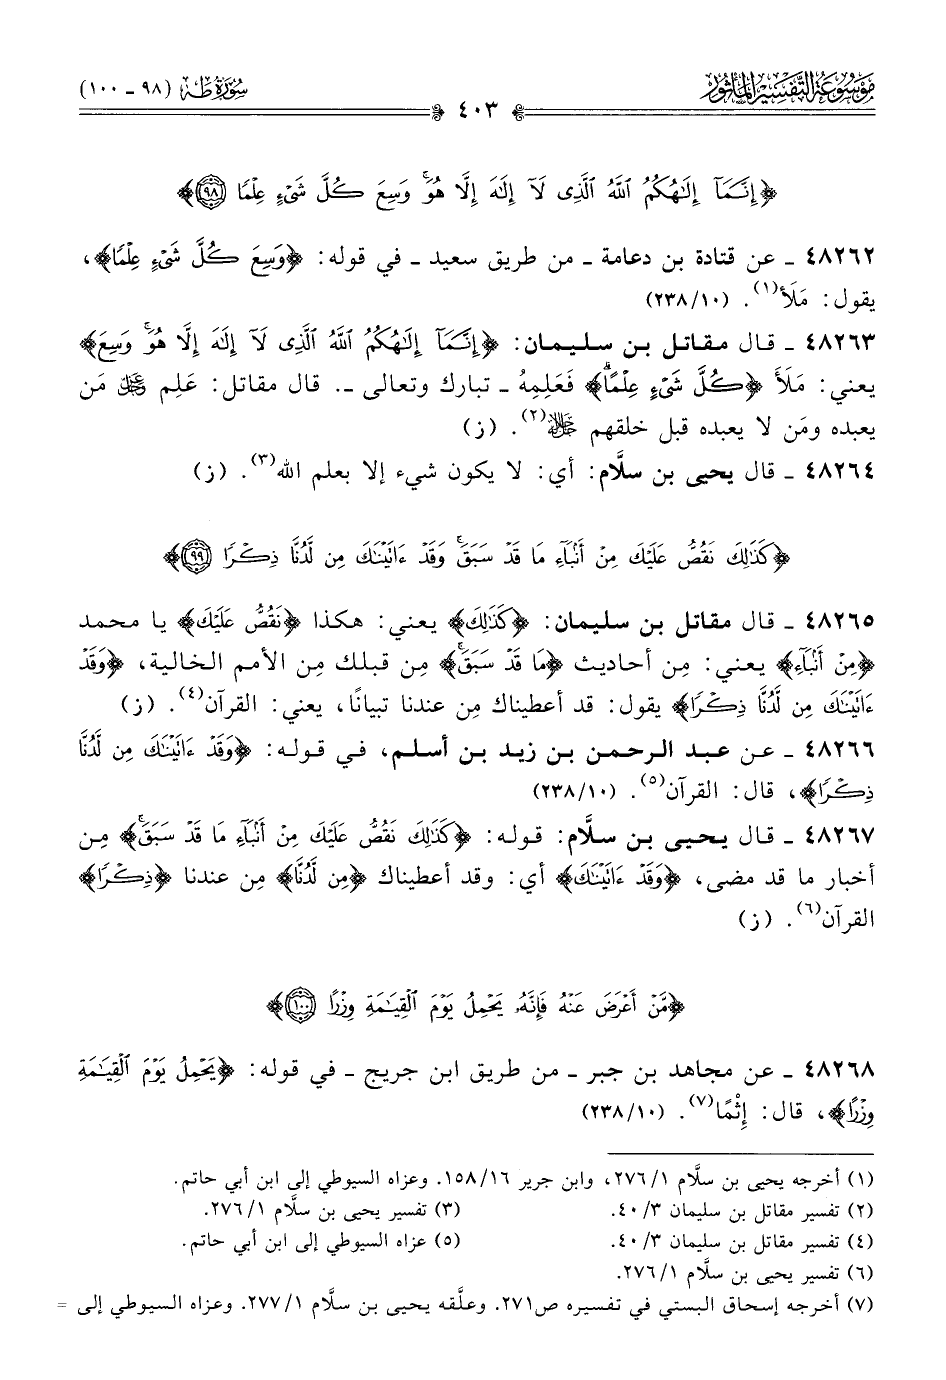 مَوْسُوعَةُ التَّفْسِيرِ المَأْثُورِ
سُورَةُ طه (٩٨ - ١٠٠)
٤٠٣
﴿إِنَّمَآ إِلَٰهُكُمُ ٱللَّهُ ٱلَّذِى لَآ إِلَٰهَ إِلَّا هُوَۚ وَسِعَ كُلَّ شَىْءٍ عِلْمًا ٩٨﴾
٤٨٢٦٢ ـ عن قتادة بن دعامة ـ من طريق سعيد ـ في قوله: ﴿وَسِعَ كُلَّ شَىْءٍ عِلْمًا﴾،
يقول: مَلَأ(١). (١٠/ ٢٣٨)
٤٨٢٦٣ ـ قال مقاتل بن سليمان: ﴿إِنَّمَآ إِلَٰهُكُمُ ٱللَّهُ ٱلَّذِى لَآ إِلَٰهَ إِلَّا هُوَۚ وَسِعَ﴾
يعني: مَلَأَ ﴿كُلَّ شَىْءٍ عِلْمًا﴾ فَعَلِمِهُ ـ تبارك وتعالى ـ. قال مقاتل: عَلِم ﷿ مَن
يعبده ومَن لا يعبده قبل خلقهم ﷻ(٢). (ز)
٤٨٢٦٤ ـ قال يحيى بن سلَّام: أي: لا يكون شيء إلا بعلم الله(٣). (ز)
﴿كَذَٰلِكَ نَقُصُّ عَلَيْكَ مِنْ أَنۢبَآءِ مَا قَدْ سَبَقَۚ وَقَدْ ءَاتَيْنَٰكَ مِن لَّدُنَّا ذِكْرًا ٩٩﴾
٤٨٢٦٥ ـ قال مقاتل بن سليمان: ﴿كَذَٰلِكَ﴾ يعني: هكذا ﴿نَقُصُّ عَلَيْكَ﴾ يا محمد
﴿مِنْ أَنۢبَآءِ﴾ يعني: مِن أحاديث ﴿مَا قَدْ سَبَقَۚ﴾ مِن قبلك مِن الأمم الخالية، ﴿وَقَدْ
ءَاتَيْنَٰكَ مِن لَّدُنَّا ذِكْرًا﴾ يقول: قد أعطيناك مِن عندنا تبيانًا، يعني: القرآن(٤). (ز)
٤٨٢٦٦ ـ عن عبد الرحمن بن زيد بن أسلم، في قوله: ﴿وَقَدْ ءَاتَيْنَٰكَ مِن لَّدُنَّا
ذِكْرًا﴾، قال: القرآن(٥). (١٠/ ٢٣٨)
٤٨٢٦٧ ـ قال يحيى بن سلَّام: قوله: ﴿كَذَٰلِكَ نَقُصُّ عَلَيْكَ مِنْ أَنۢبَآءِ مَا قَدْ سَبَقَۚ﴾ مِن
أخبار ما قد مضى، ﴿وَقَدْ ءَاتَيْنَٰكَ﴾ أي: وقد أعطيناك ﴿مِن لَّدُنَّا﴾ مِن عندنا ﴿ذِكْرًا﴾
القرآن(٦). (ز)
﴿مَّنْ أَعْرَضَ عَنْهُ فَإِنَّهُۥ يَحْمِلُ يَوْمَ ٱلْقِيَٰمَةِ وِزْرًا ١٠٠﴾
٤٨٢٦٨ ـ عن مجاهد بن جبر ـ من طريق ابن جريج ـ في قوله: ﴿يَحْمِلُ يَوْمَ ٱلْقِيَٰمَةِ
وِزْرًا﴾، قال: إِثْمًا(٧). (١٠/ ٢٣٨)
(١) أخرجه يحيى بن سلَّام ١/ ٢٧٦، وابن جرير ١٦/ ١٥٨. وعزاه السيوطي إلى ابن أبي حاتم.
(٢) تفسير مقاتل بن سليمان ٣/ ٤٠. (٣) تفسير يحيى بن سلَّام ١/ ٢٧٦.
(٤) تفسير مقاتل بن سليمان ٣/ ٤٠. (٥) عزاه السيوطي إلى ابن أبي حاتم.
(٦) تفسير يحيى بن سلَّام ١/ ٢٧٦.
(٧) أخرجه إسحاق البستي في تفسيره ص٢٧١. وعلَّقه يحيى بن سلَّام ١/ ٢٧٧. وعزاه السيوطي إلى =